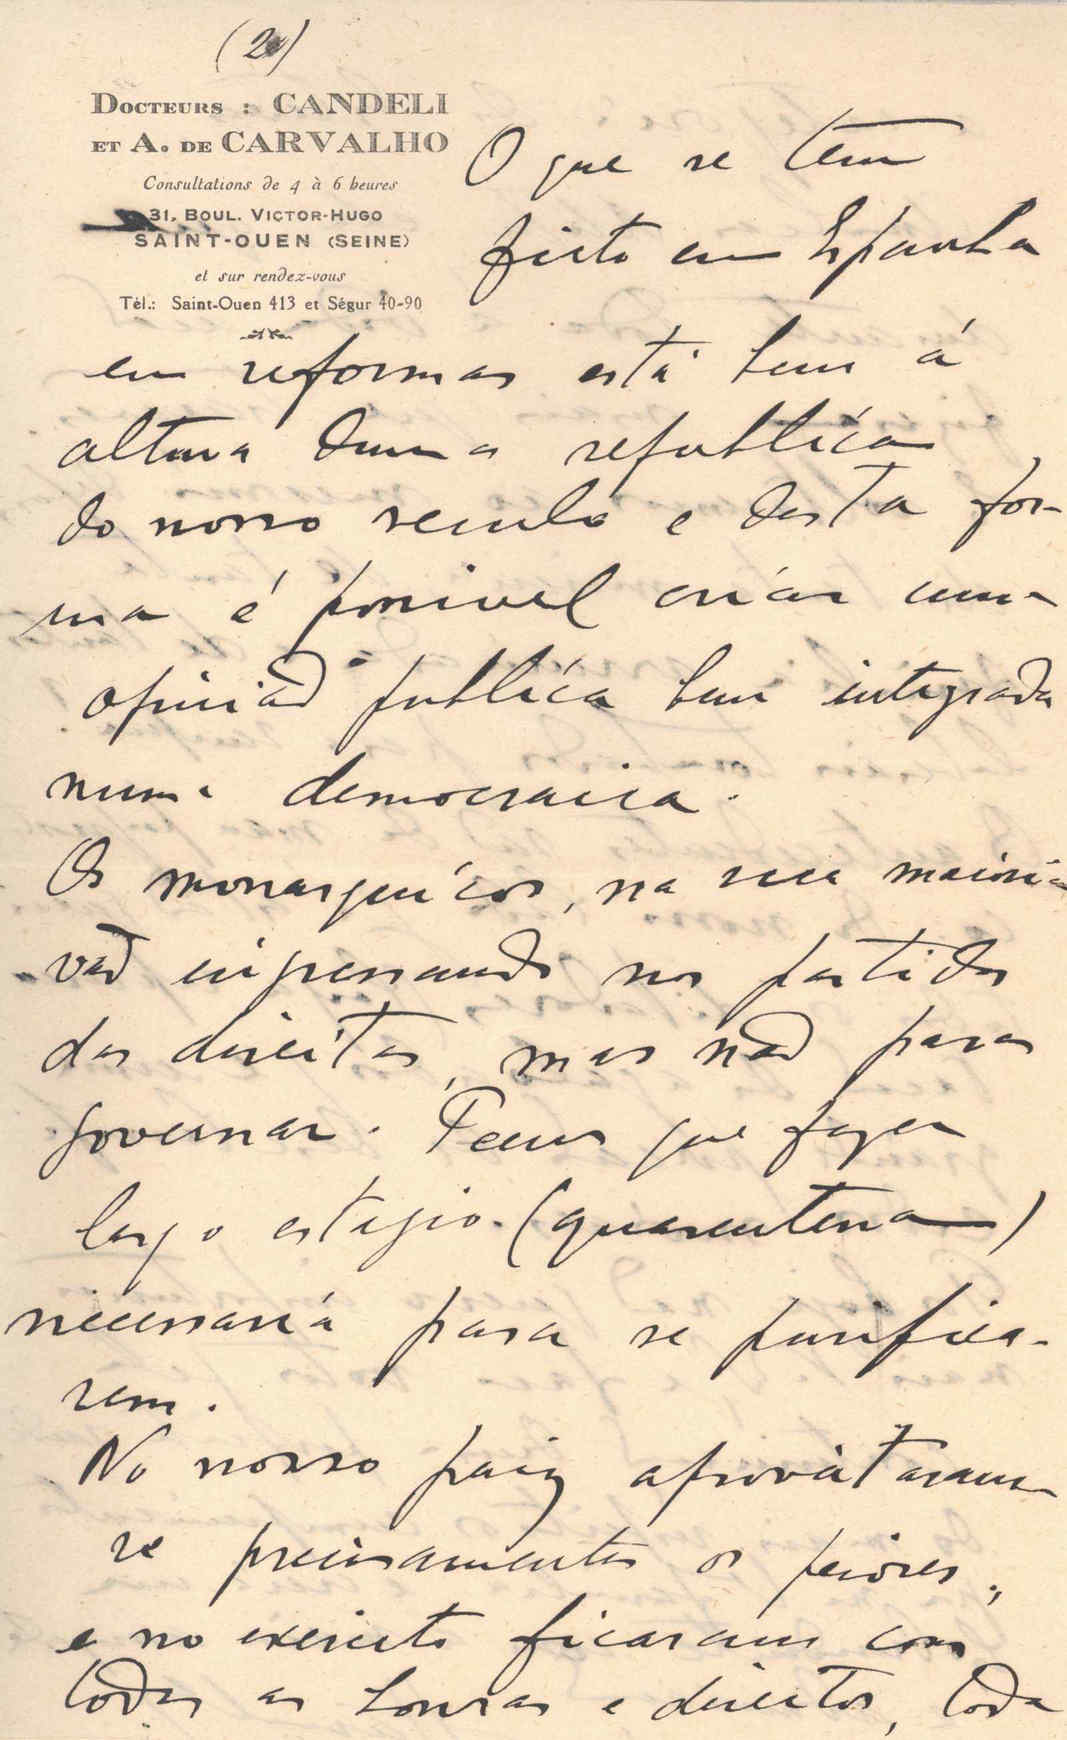 (2)
DOCTEURS : CANDELI
ET A. DE CARVALHO
Consultations de 4 à 6 heures
31, BOUL. VICTOR-HUGO
SAINT-OUEN (SEINE)
et sur rendez-vous
Tél.: Saint-Ouen 413 et Ségur 40-90
O que se tem
feito em Espanha
em reformas está bem á
altura duma republica
do nosso seculo e desta for-
ma é possivel criar uma
opinião publica bem integrada
numa democracia.
Os monarquicos, na sua maioria
vão ingressando nos partidos
das direitas, mas não para
governar. Teem que fazer
largo estagio (quarentena)
necessaria para se purifica-
rem.
No nosso paiz aproveitaram-
se precisamente os peiores,
e no exercito ficaram com
todas as honras e direitos, toda